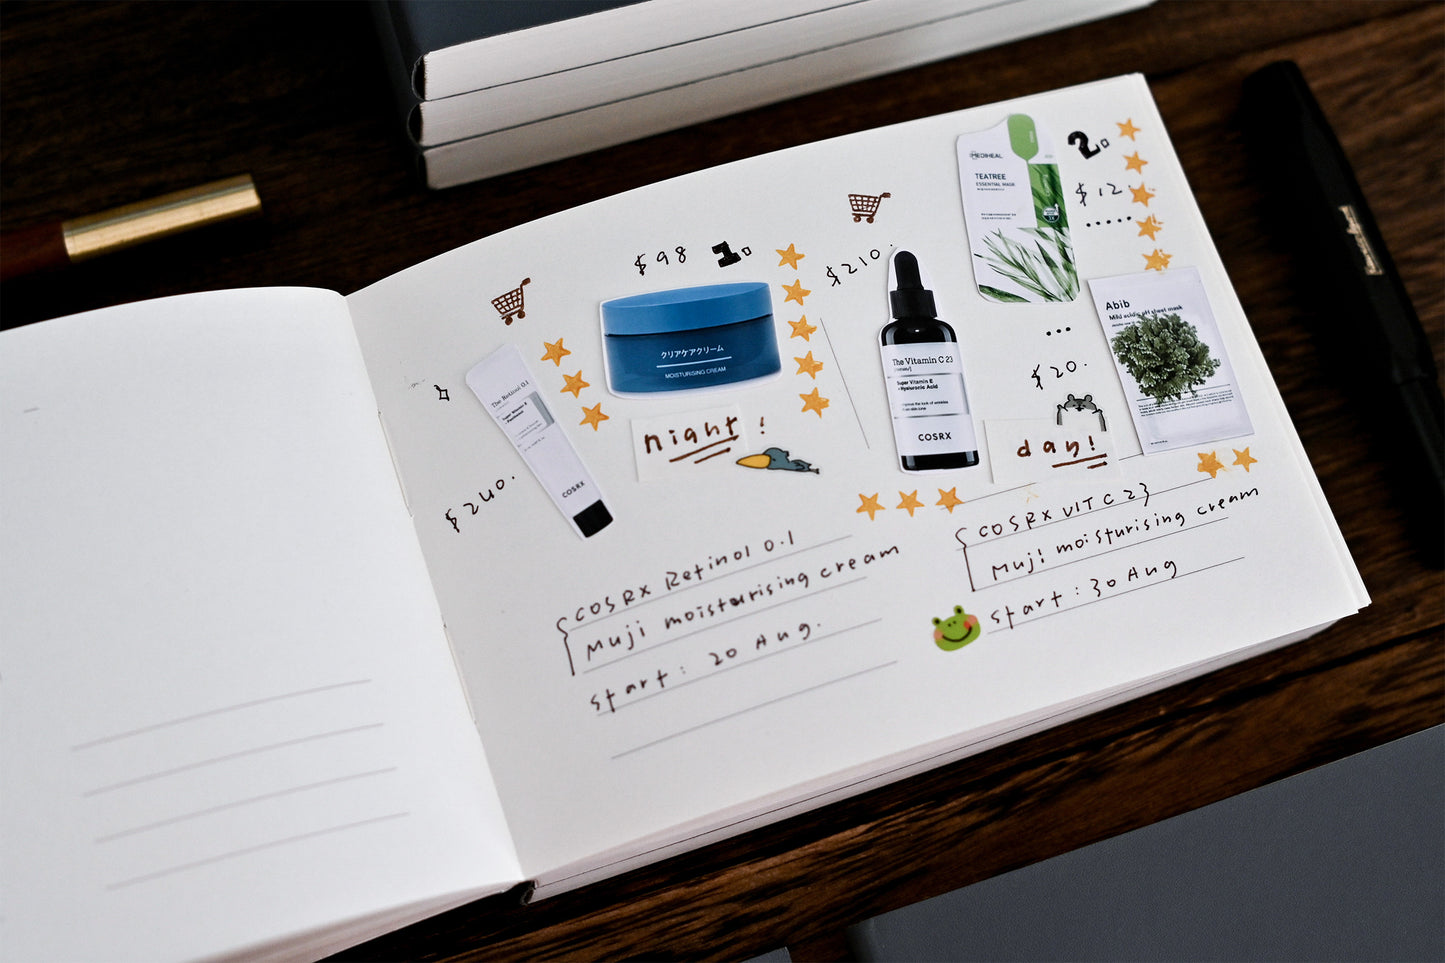 $98
1.
$240.
The Retinol 0.1
Super Vitamin E
COSRX
クリアケアクリーム
MOISTURISING CREAM
night!
COSRX Retinol 0.1
Muji moisturising cream
start: 20 Aug.
$210.
The Vitamin C 23
Super Vitamin E
+Hyaluronic Acid
COSRX
MEDIHEAL
TEATREE
ESSENTIAL MASK
2.
$12.
.....
...
$20.
Abib
Mild acidic pH sheet mask
day!
COSRX VIT C 23
Muji moisturising cream
start: 30 Aug